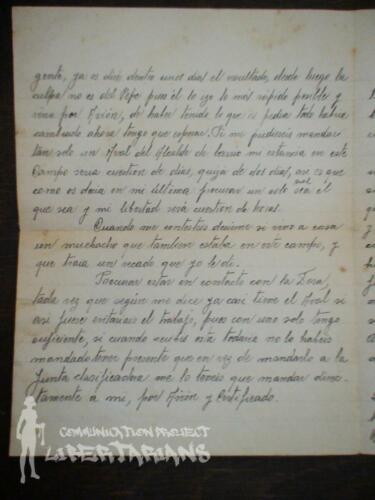 gente, ya os diré dentro unos dias el resultado, desde luego la
culpa no es del Pepe pues él lo izo lo más rápido posible y
vino por Avión, de haber tenido lo que os pedia todo habria
cambiado ahora tengo que esperar. Si me pudierais mandar
tan solo un Aval del Alcalde de barrio mi estancia en este
Campo seria cuestion de dias, quiza de dos dias, asi es que
como os decia en mi última procurar un solo aval sea él
que sea y mi libertad será cuestion de horas.
Cuando me contesteis decirme si vino a casa
un muchacho que tambien estaba en este campo, y
que traia un recado que yo le di.
Procurar estar en contacto con la
toda vez que según me dice ya casi tiene el Aval si
asi fuese evitariais el trabajo, pues con uno solo tengo
suficiente, si cuando recibis esta todavia no lo habeis
mandado tener presente que en vez de mandarlo a la
Junta clasificadora me lo teneis que mandar direc-
tamente a mi, por Avión y Certificado.
COMMUNICATION PROJECT
LIBERTARIANS